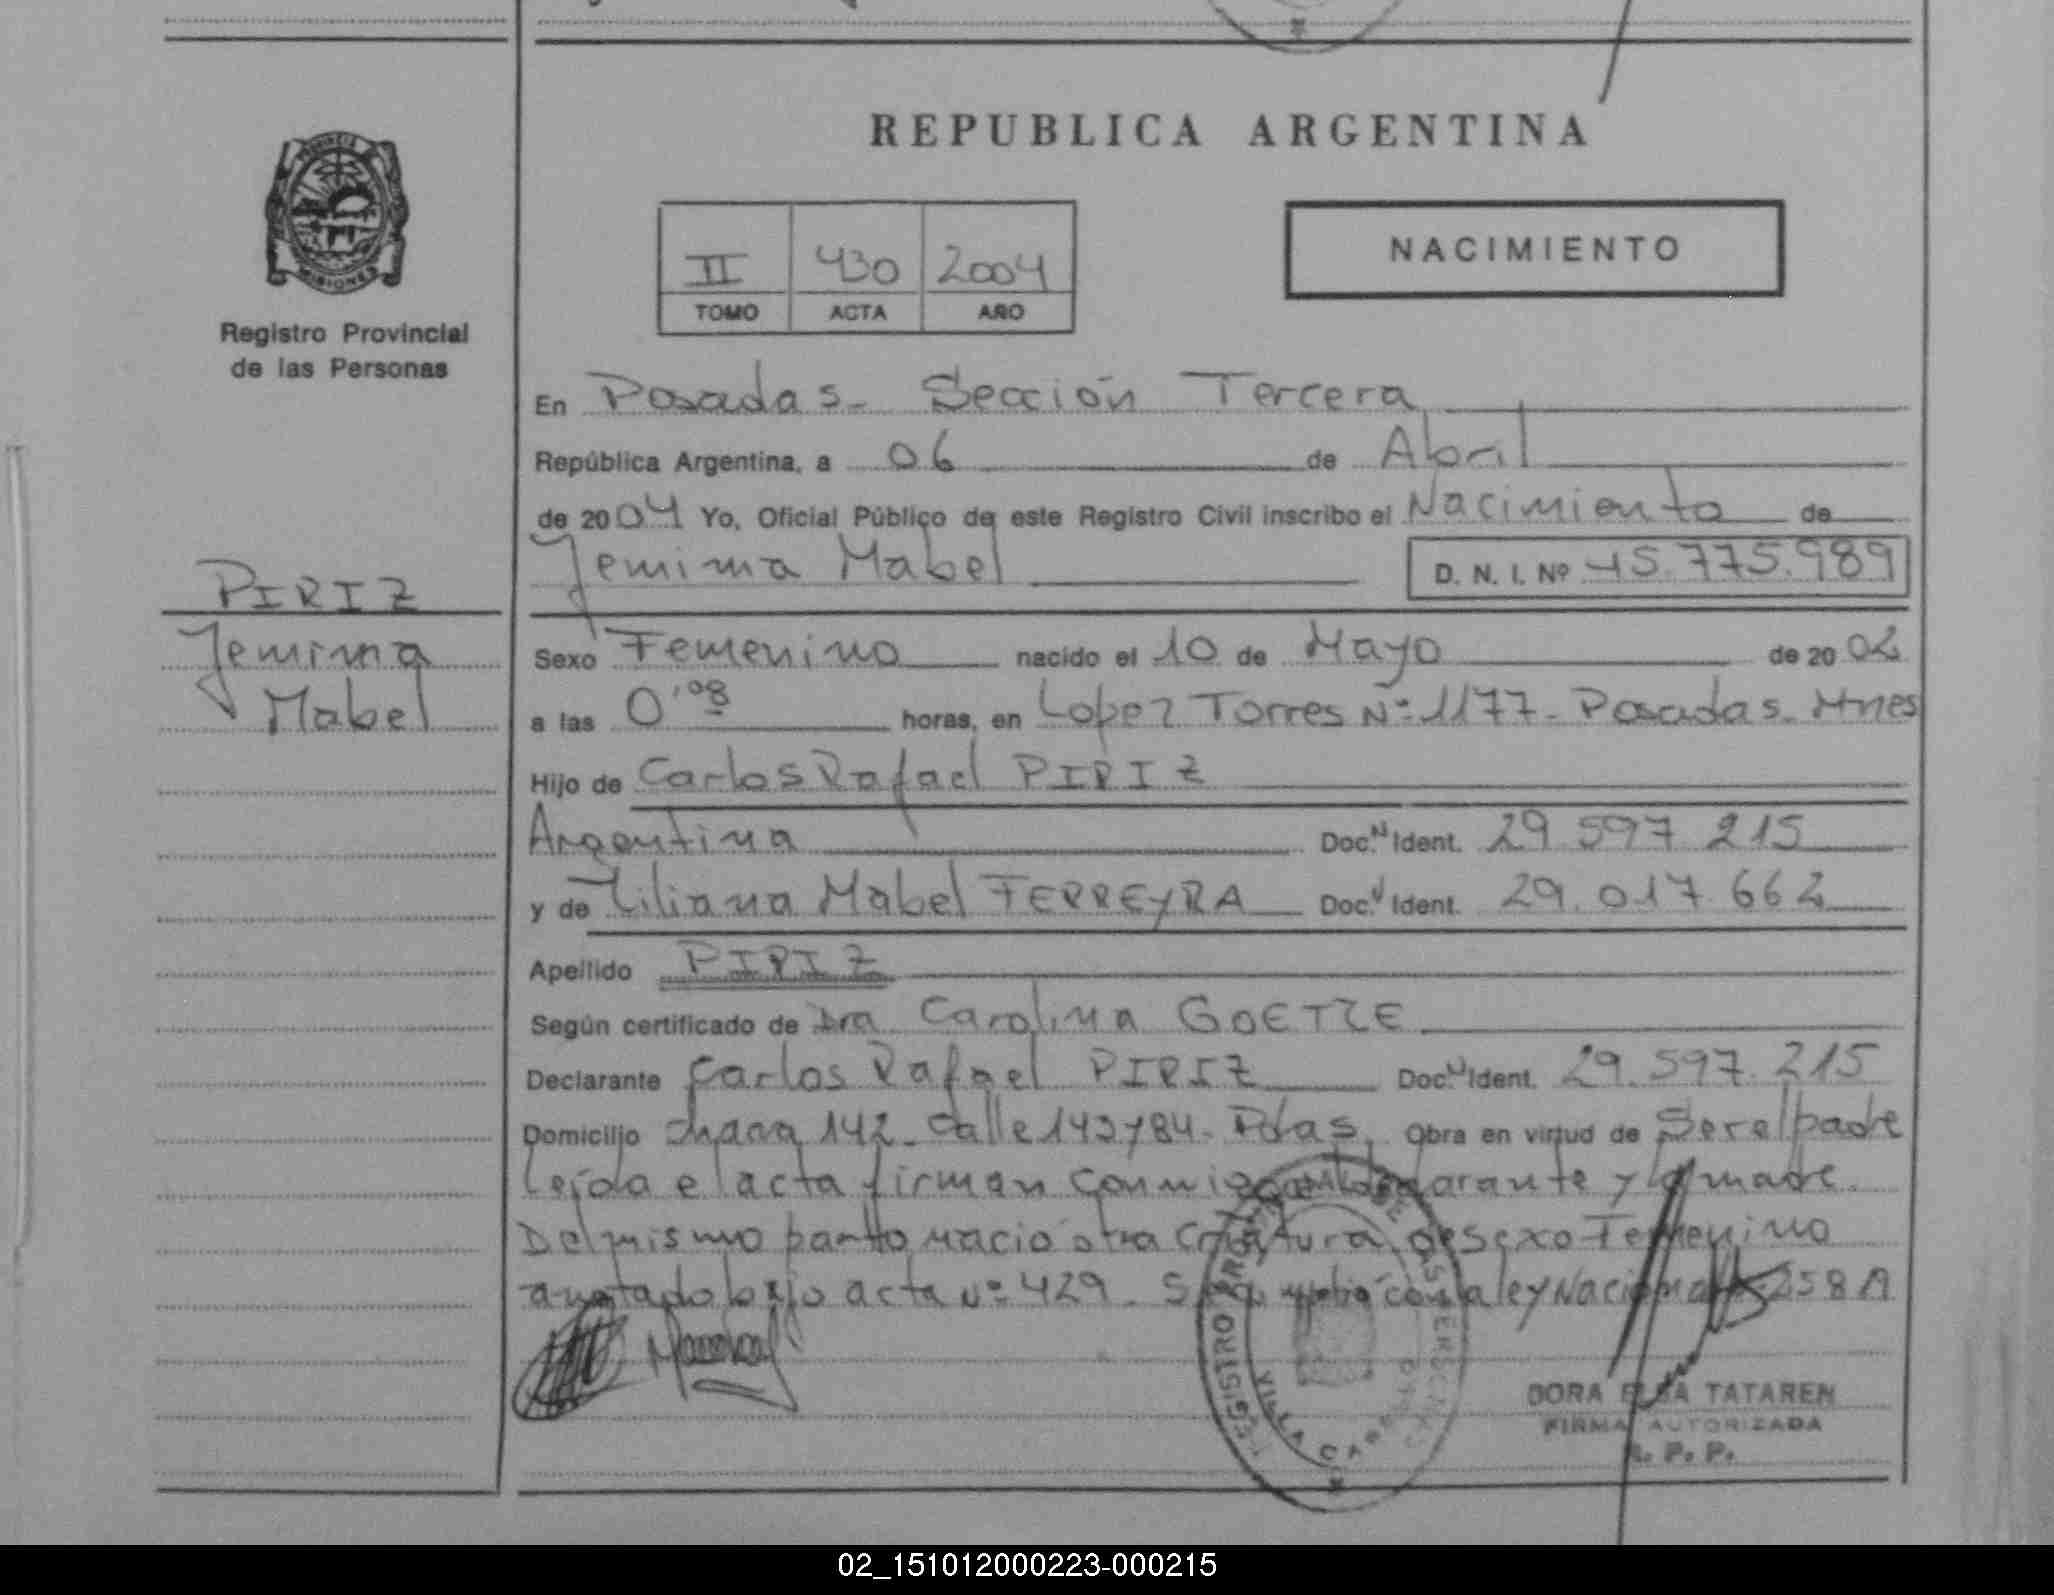 REPUBLICA ARGENTINA
PROVINCIA
MISIONES
Registro Provincial
de las Personas
NACIMIENTO
II 430 2004
TOMO ACTA AÑO
En Posadas - Sección Tercera
República Argentina, a 06 de Abril
de 2004 Yo, Oficial Público de este Registro Civil inscribo el Nacimiento de
Jemima Mabel D. N. I. Nº 45.775.989
PIRIZ
Jemima
Mabel
Sexo Femenino nacido el 10 de Mayo de 2002
a las 0'08 horas, en Lopez Torres Nº 1177 - Posadas - Mnes
Hijo de Carlos Rafael PIRIZ
Argentina Doc. N Ident. 29.597.215
y de Liliana Mabel FERREYRA Doc. N Ident. 29.017.662
Apellido PIRIZ
Según certificado de Dra Carolina GOETZE
Declarante Carlos Rafael PIRIZ Doc. N Ident. 29.597.215
Domicilio chacra 142 - calle 143 y 84 - Pdas. Obra en virtud de Ser el padre
Leída el acta firman conmigo el declarante y la madre.
Del mismo parto nació otra criatura de sexo Femenino
anotado bajo acta Nº 429 - Se cumplió con la ley Nacional 258
REGISTRO PROVINCIAL DE LAS PERSONAS
VILLA CABELLO
DORA ELSA TATAREN
FIRMA AUTORIZADA
R. P. P.
02_151012000223-000215